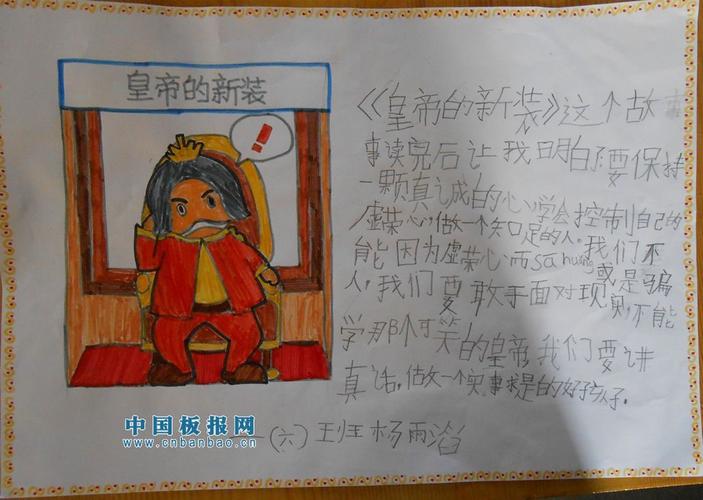 皇帝的新装
!
《皇帝的新装》这个故事
事读完后让我明白了要保持
一颗真诚的心,学会控制自己的
虚荣心,做一个知足的人。我们不
能因为虚荣心而sa huang或是骗
人,我们要敢于面对现实,不能
学那个可笑的皇帝,我们要讲
真话,做一个实事求是的好孩子。
(六) 王 杨雨滔
中国板报网
www.cnbanbao.cn